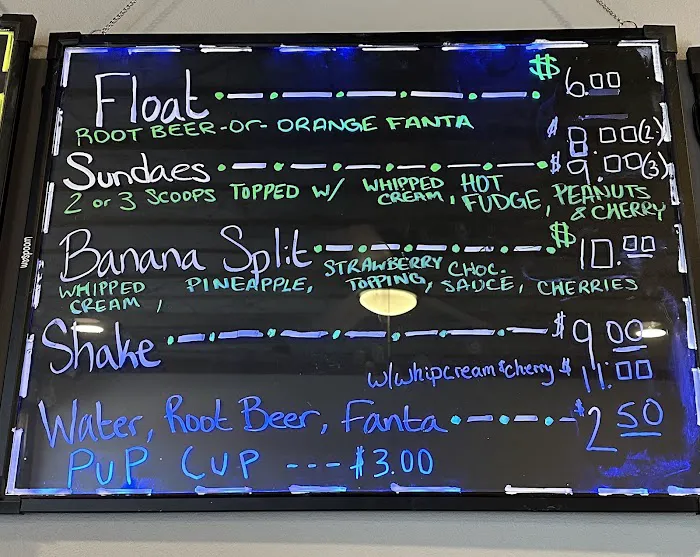 Float $ 6.00
ROOT BEER -or- ORANGE FANTA
$ 8.00(2)
Sundaes $ 9.00(3)
2 or 3 SCOOPS TOPPED W/ WHIPPED CREAM, HOT FUDGE, PEANUTS & CHERRY
Banana Split $ 10.00
WHIPPED CREAM, PINEAPPLE, STRAWBERRY TOPPING, CHOC. SAUCE, CHERRIES
Shake $ 9.00
w/whipcream & cherry $ 11.00
Water, Root Beer, Fanta $2.50
PUP CUP --- $3.00
woodpam